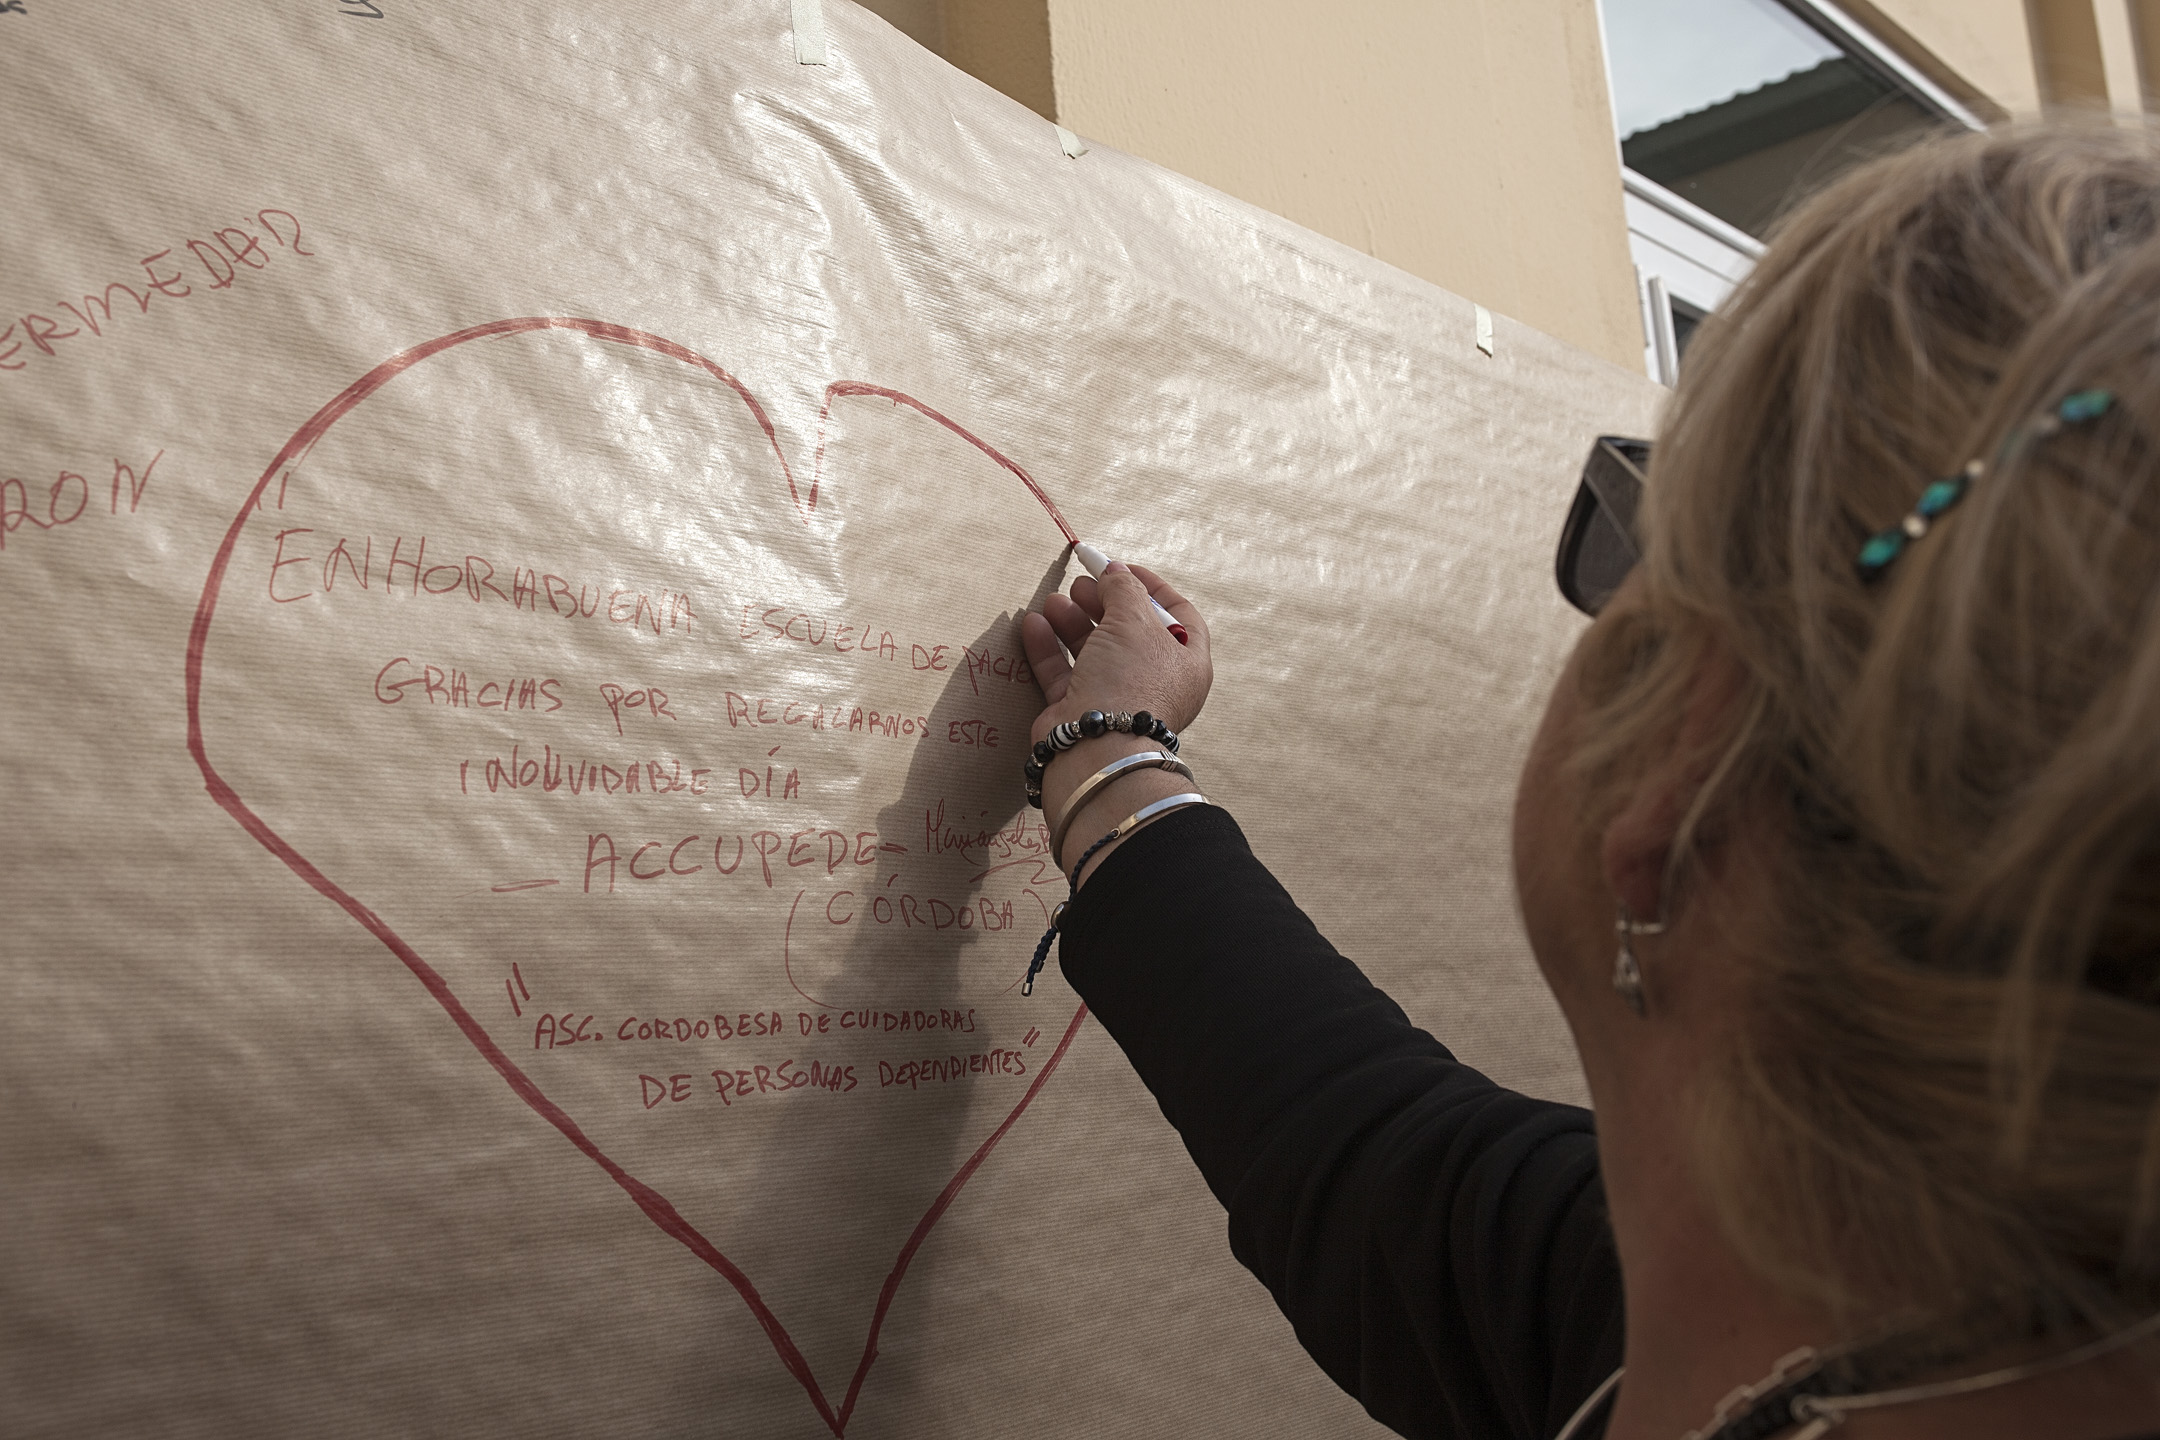 ERMEDAR
RON
"
ENHORABUENA ESCUELA DE PACIE
GRACIAS POR REGALARNOS ESTE
INOLVIDABLE DÍA
— ACCUPEDE –
(CÓRDOBA)
" ASC. CORDOBESA DE CUIDADORAS
DE PERSONAS DEPENDIENTES "